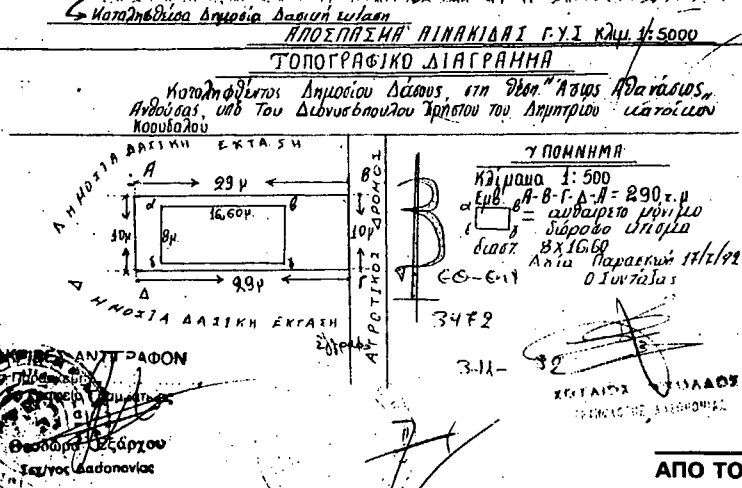 Καταληφθείσα Δημοσία Δασική έκταση
ΑΠΟΣΠΑΣΜΑ ΠΙΝΑΚΙΔΑΣ Γ.Υ.Σ κλιμ. 1:5000
ΤΟΠΟΓΡΑΦΙΚΟ ΔΙΑΓΡΑΜΜΑ
Καταληφθέντος Δημοσίου Δάσους, στη θέση "Άγιος Αθανάσιος"
Ανθούσας, υπό του Διονυσόπουλου Χρήστου του Δημητρίου κατοίκου
Κορυδαλού
ΔΗΜΟΣΙΑ ΔΑΣΙΚΗ ΕΚΤΑΣΗ
Α 29 μ Β
α 16,60μ. β
10μ 8μ. 10μ
δ γ
Δ 29μ Γ
ΔΗΜΟΣΙΑ ΔΑΣΙΚΗ ΕΚΤΑΣΗ
ΑΓΡΟΤΙΚΟΣ ΔΡΟΜΟΣ
ΥΠΟΜΝΗΜΑ
Κλίμακα 1:500
Εμβ. Α-Β-Γ-Δ-Α = 290 τ.μ
α β = αυθαίρετο μόνιμο
δ γ διώροφο κτίσμα
διαστ. 8Χ16,60
Αγία Παρασκευή 17/2/92
Ο Συντάξας
3472
3-11- 92
ΑΚΡΙΒΕΣ ΑΝΤΙΓΡΑΦΟΝ
Θεοδώρα Εξάρχου
Τεχ/νος Δασοπονίας
ΑΠΟ ΤΟ